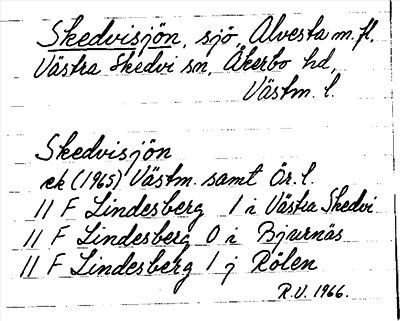 Skedvisjön, sjö, Alvesta m.fl.
Västra Skedvi sn, Åkerbo hd,
Västm. l.
Skedvisjön
ek (1965) Västm. samt Ör. l.
11 F Lindesberg 1 i Västra Skedvi
11 F Lindesberg 0 i Bjurnäs
11 F Lindesberg 1 j Rölen
R.V. 1966.